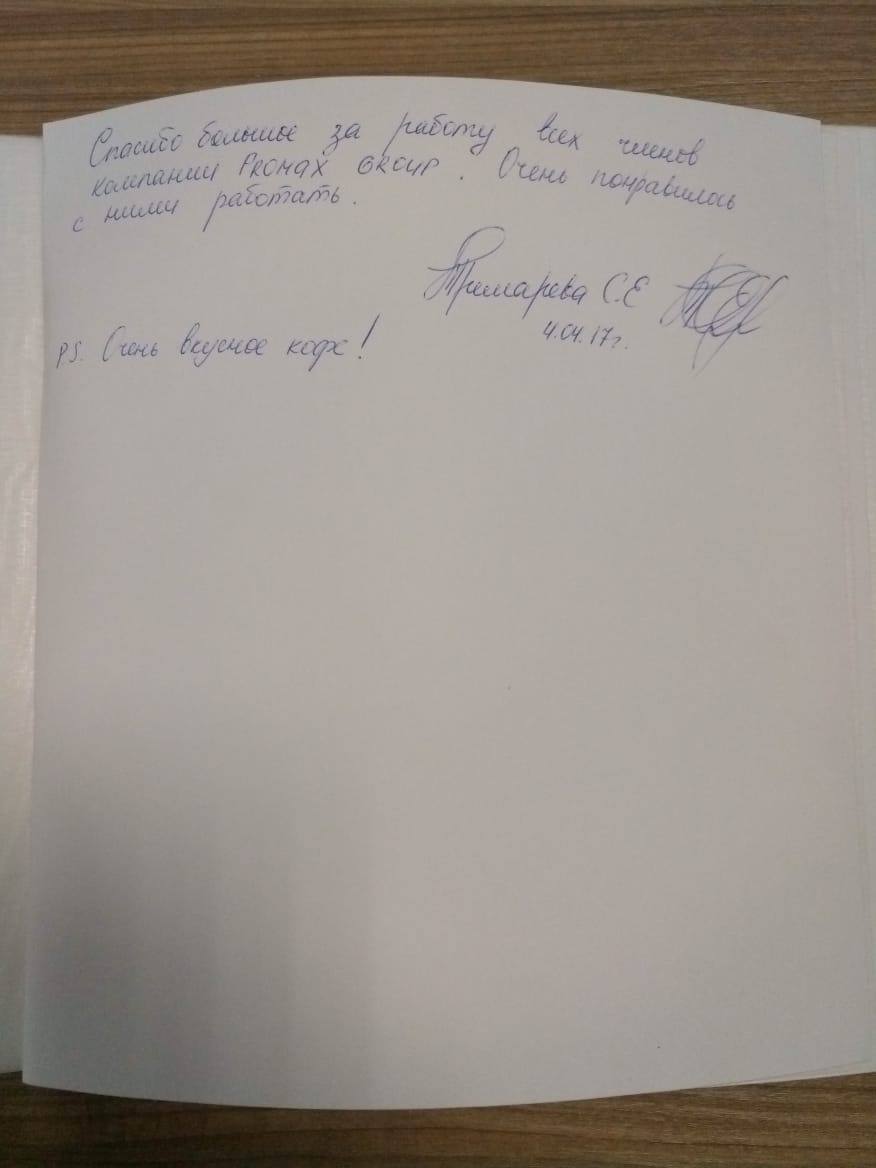 Спасибо большое за работу всех членов
компании PROMAX GROUP. Очень понравилось
с ними работать.
Тримарева С.Е
4.04.17г.
P.S. Очень вкусное кофе!